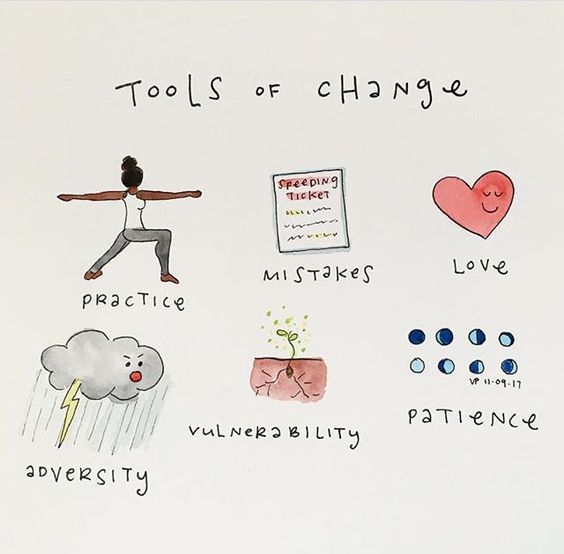 TOOLS OF CHaNge
SPeeDING
TICKeT
PRacTIce
MISTaKeS
LOVe
VP 11-09-17
aDVeRSITY
VULNeRaBILITY
PaTIeNCe